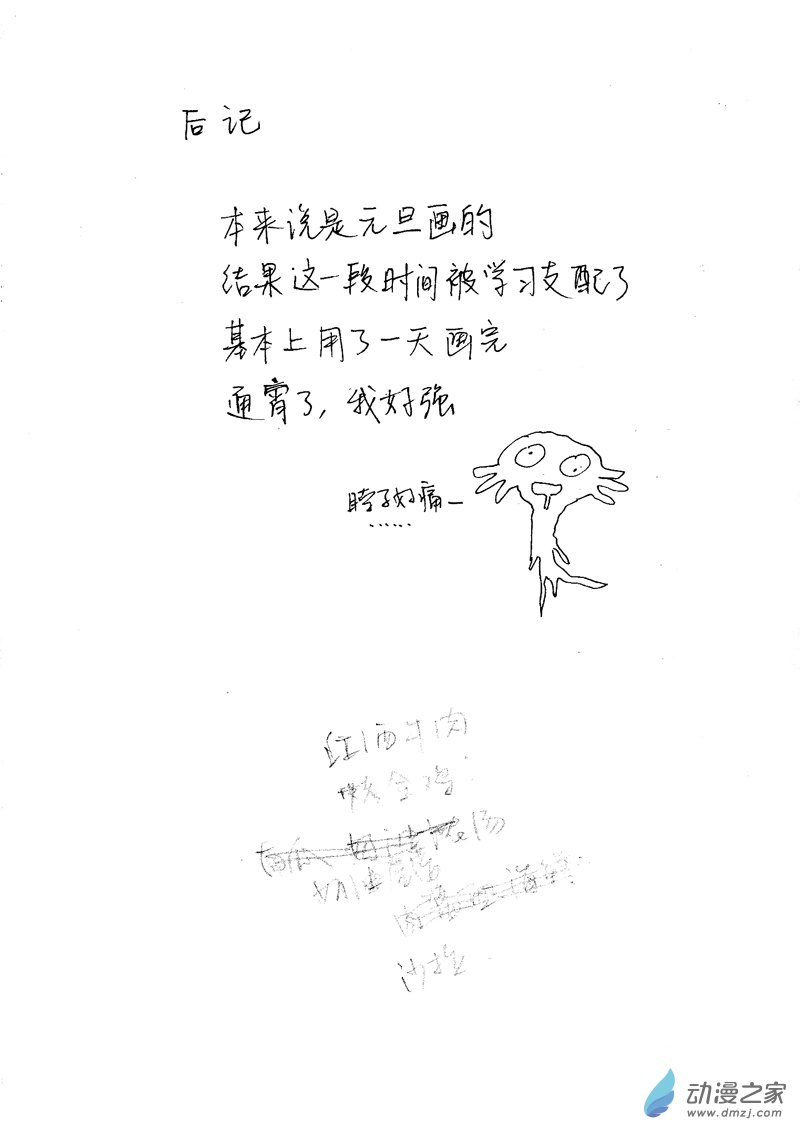 后记
本来说是元旦画的
结果这一段时间被学习支配了
基本上用了一天画完
通宵了,我好强
脖子好痛
……
红酒牛肉
沙拉
动漫之家
www.dmzj.com